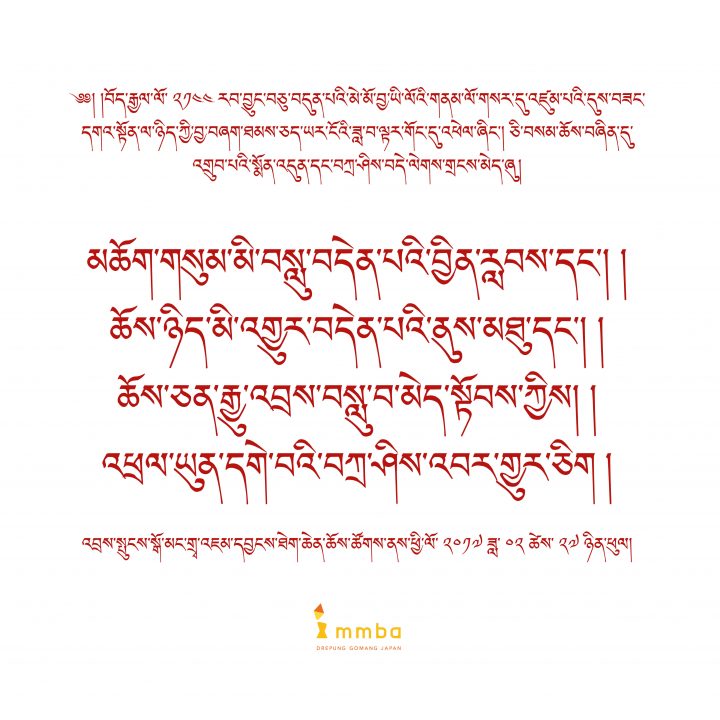 ༄༅། །བོད་རྒྱལ་ལོ་ ༢༡༤༤ རབ་བྱུང་བཅུ་བདུན་པའི་མེ་མོ་བྱ་ཡི་ལོའི་གནམ་ལོ་གསར་དུ་འཛུམ་པའི་དུས་བཟང་
དགའ་སྟོན་ལ་ཉིད་ཀྱི་བྱ་བཞག་ཐམས་ཅད་ཡར་ངོའི་ཟླ་བ་ལྟར་གོང་དུ་འཕེལ་ཞིང་། ཅི་བསམ་ཆོས་བཞིན་དུ་
འགྲུབ་པའི་སྨོན་འདུན་དང་བཀྲ་ཤིས་བདེ་ལེགས་གྲངས་མེད་ཞུ།
མཆོག་གསུམ་མི་བསླུ་བདེན་པའི་བྱིན་རླབས་དང་། །
ཆོས་ཉིད་མི་འགྱུར་བདེན་པའི་ནུས་མཐུ་དང་། །
ཆོས་ཅན་རྒྱུ་འབྲས་བསླུ་བ་མེད་སྟོབས་ཀྱིས། །
འཕྲལ་ཡུན་དགེ་བའི་བཀྲ་ཤིས་འབར་གྱུར་ཅིག །
འབྲས་སྤུངས་སྒོ་མང་གྲྭ་འཇམ་དབྱངས་ཐེག་ཆེན་ཆོས་ཚོགས་ནས་ཕྱི་ལོ་ ༢༠༡༧ ཟླ་ ༠༢ ཚེས་ ༢༧ ཉིན་ཕུལ།
mmba
DREPUNG GOMANG JAPAN